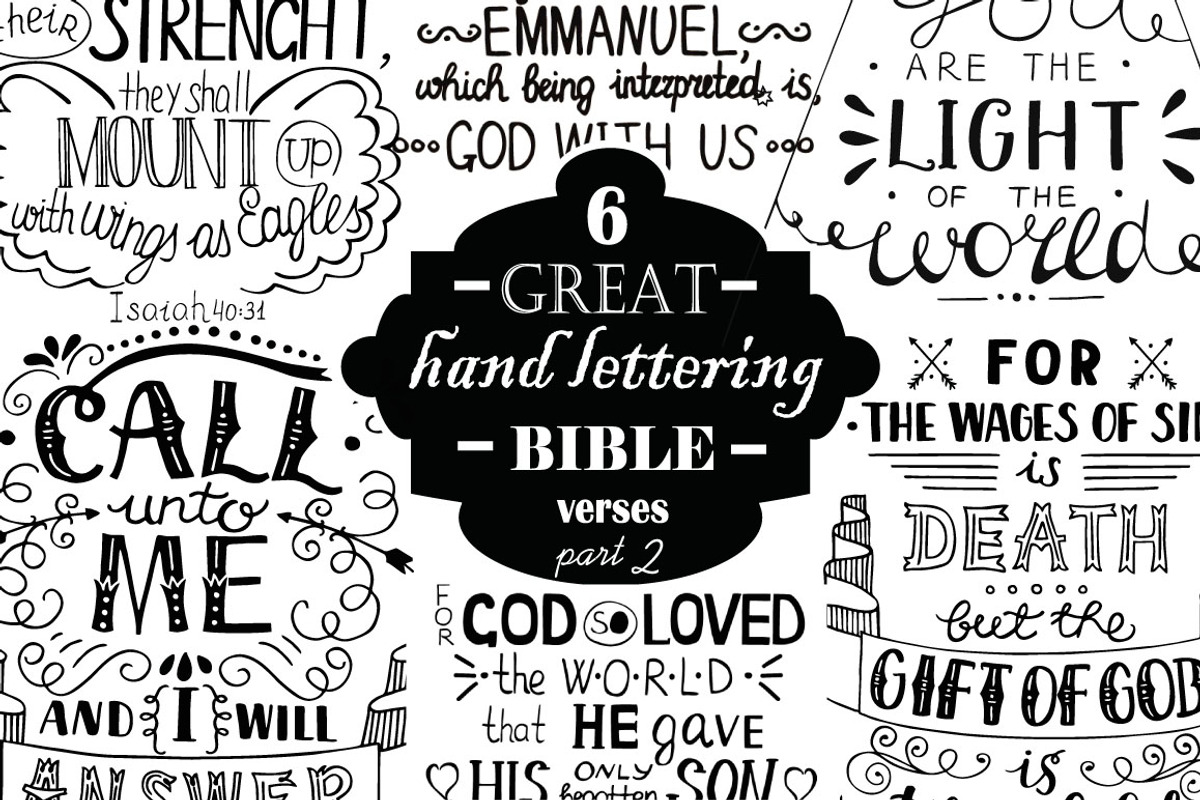 heiR STRENGHT,
they shall
MOUNT UP
with wings as Eagles
Isaiah 40:31
EMMANUEL,
which being interpreted, is,
GOD WITH US
God
ARE THE
LIGHT
OF THE
world
6
GREAT
hand lettering
BIBLE
verses
part 2
CALL
unto
ME
AND I WILL
ANSWER
FOR GOD SO LOVED
the W·O·R·L·D
that HE gave
HIS ONLY begotten SON
FOR
THE WAGES OF SIN
is
DEATH
but the
GIFT OF GOD
is